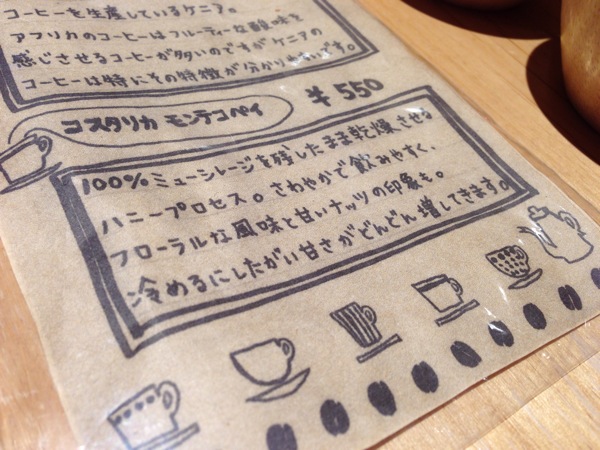 コーヒーを生産しているケニア。
アフリカのコーヒーはフルーティーな酸味を
感じさせるコーヒーが多いのですがケニアの
コーヒーは特にその特徴が分かりやすいです。
コスタリカ モンテコペイ ¥550
100%ミューシレージを残したまま乾燥させる
ハニープロセス。さわやかで飲みやすく、
フローラルな風味と甘いナッツの印象も。
冷めるにしたがい甘さがどんどん増してきます。